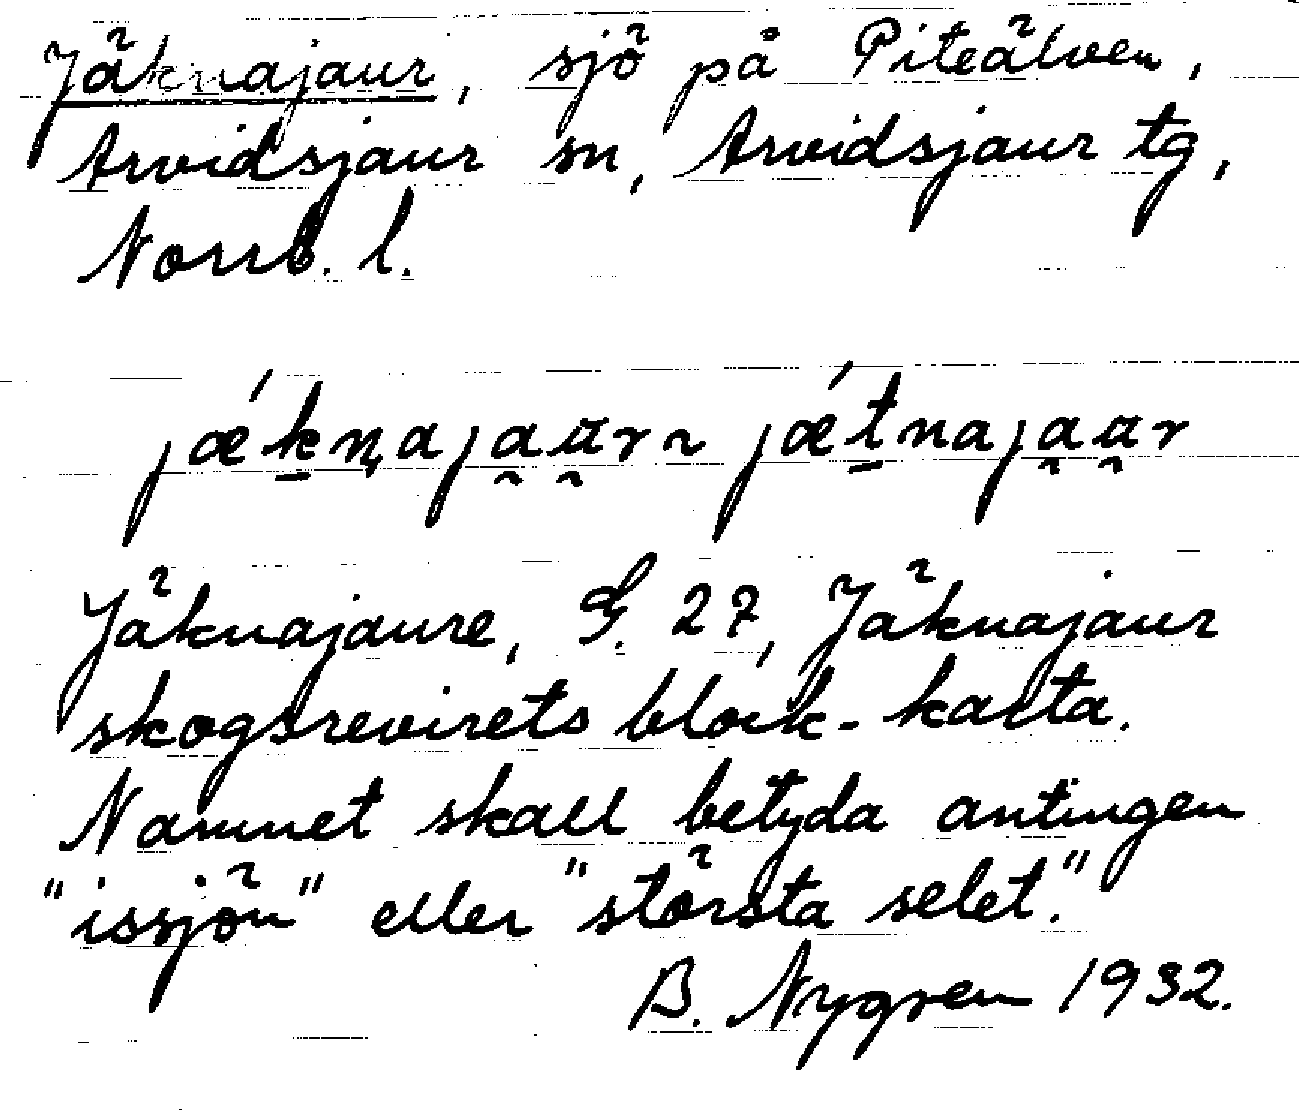 Jäknajaur, sjö på Piteälven,
Arvidsjaur sn, Arvidsjaur tg,
Norrb. l.
jǽk̲n̨aja̯a̯r ~ jǽt̲naja̯a̯r
Jäknajaure, G. 27, Jäknajaur
skogsrevirets block-karta.
Namnet skall betyda antingen
"issjön" eller "största selet."
B. Nygren 1932.